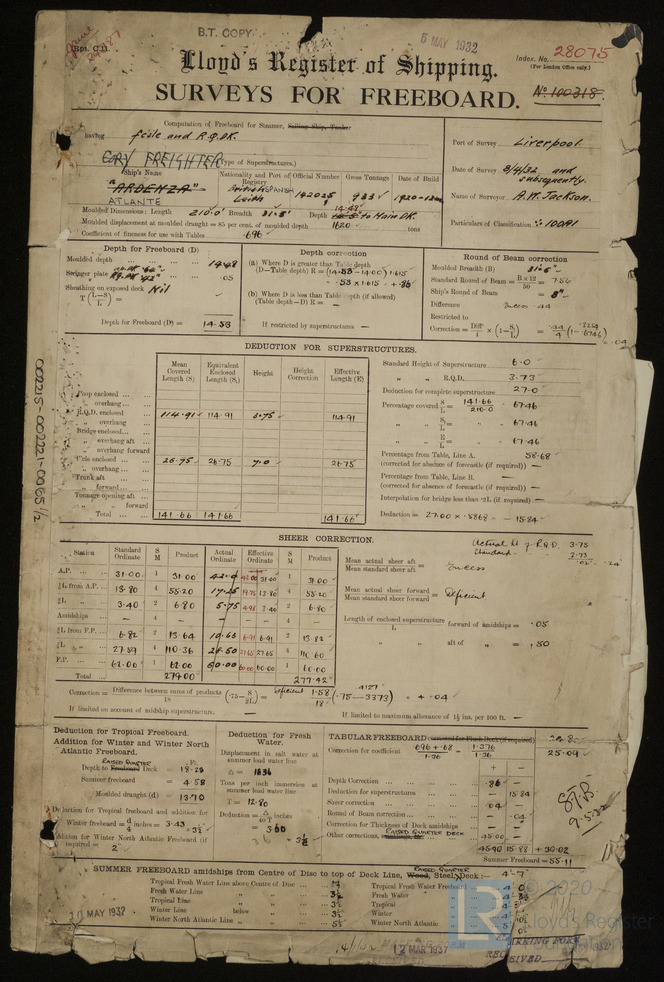 B.T. COPY
5 MAY 1932
Index. No. 28075
(For London Office only.)
Lloyd's Register of Shipping.
SURVEYS FOR FREEBOARD.
No 100318.
Computation of Freeboard for Steamer, Sailing Ship, Tanker
having fcsle and R.Q.DK.
CORY FREIGHTER (Type of Superstructures.)
Ship's Name
Nationality and Port of Registry
Official Number
Gross Tonnage
Date of Build
"ARDENZA"
ATLANTE
British SPANISH
Leith
142025
933
1920
Moulded Dimensions: Length 210.0 Breadth 31.5 Depth 14.48 to Main DK.
Moulded displacement at moulded draught = 85 per cent. of moulded depth 1620 tons
Coefficient of fineness for use with Tables .696
Port of Survey Liverpool
Date of Survey 8/4/32 and subsequently.
Name of Surveyor A.W. Jackson.
Particulars of Classification 100A1
Depth for Freeboard (D)
Moulded depth 14.48
Stringer plate .05
Sheathing on exposed deck Nil
T (L-S / L)
Depth for Freeboard (D) = 14.53
Depth correction
(a) Where D is greater than Table depth
(D—Table depth) R = (14.53 - 14.00) 1.615
= .53 x 1.615 = + .86
(b) Where D is less than Table depth (if allowed)
(Table depth—D) R =
If restricted by superstructures
Round of Beam correction
Moulded Breadth (B) 31.5
Standard Round of Beam = B x 12 / 50 = 7.56
Ship's Round of Beam = 8"
Difference Excess .44
Restricted to
Correction = Diff / 4 x (1 - S1 / L) = .44 / 4 (1 - .6746) = .04
DEDUCTION FOR SUPERSTRUCTURES.
Mean Covered Length (S)
Equivalent Enclosed Length (S1)
Height
Height Correction
Effective Length (E)
Poop enclosed
" overhang
R.Q.D. enclosed 114.91 114.91 3.75 114.91
" overhang
Bridge enclosed
" overhang aft
" overhang forward
F'cle enclosed 26.75 26.75 7.0 26.75
" overhang
Trunk aft
" forward
Tonnage opening aft
" " forward
Total 141.66 141.66 141.66
Standard Height of Superstructure 6.0
" " R.Q.D. 3.73
Deduction for complete superstructure 27.0
Percentage covered S / L = 141.66 / 210.0 = 67.46
" " S1 / L = " = 67.46
" " E / L = " = 67.46
Percentage from Table, Line A. 58.68
(corrected for absence of forecastle (if required))
Percentage from Table, Line B.
(corrected for absence of forecastle (if required))
Interpolation for bridge less than .2L (if required)
Deduction = 27.00 x .5868 = 15.84
SHEER CORRECTION.
Actual Ht of R.Q.D. 3.75
Standard 3.73
Station
Standard Ordinate
S M
Product
Actual Ordinate
Effective Ordinate
S M
Product
A.P. 31.00 1 31.00 42.0 31.00 1 31.00
⅙L from A.P. 13.80 4 55.20 17.25 13.80 4 55.20
⅓L " 3.40 2 6.80 5.75 3.40 2 6.80
Amidships — 4 — — — 4 —
⅓L from F.P. 6.82 2 13.64 10.66 6.91 2 13.82
⅙L " 27.59 4 110.36 28.50 27.65 4 110.60
F.P. 62.00 1 62.00 60.00 60.00 1 60.00
Total 279.00 277.42
Mean actual sheer aft / Mean standard sheer aft = Excess
Mean actual sheer forward / Mean standard sheer forward = Deficient
Length of enclosed superstructure / L forward of amidships = .05
" " aft of " = .50
Correction = Difference between sums of products / 18 (.75 - S / 2L) = deficient 1.58 / 18 (.75 - .3373) = + .04
If limited on account of midship superstructure.
If limited to maximum allowance of 1½ ins. per 100 ft.
Deduction for Tropical Freeboard.
Addition for Winter and Winter North Atlantic Freeboard.
Depth to RAISED QUARTER Deck = 18.28
Summer freeboard = 4.58
Moulded draught (d) = 13.70
Deduction for Tropical freeboard and addition for Winter freeboard = d / 4 inches = 3.43 = 3½
Addition for Winter North Atlantic Freeboard (if required) = 2
Deduction for Fresh Water.
Displacement in salt water at summer load water line
Δ = 1636
Tons per inch immersion at summer load water line
T = 12.80
Deduction = Δ / 40T inches
= 3½
TABULAR FREEBOARD corrected for Flush Deck (if required) 24.80
Correction for coefficient .696 + .68 / 1.36 = 1.376 / 1.36 25.09
+ -
Depth Correction .86
Deduction for superstructures 15.84
Sheer correction .04
Round of Beam correction .04
Correction for Thickness of Deck amidships
Other corrections, RAISED QUARTER DECK 45.00
45.90 15.88 + 30.02
Summer Freeboard = 55.11
STB
9.5.32
SUMMER FREEBOARD amidships from Centre of Disc to top of Deck Line, RAISED QUARTER Wood, Steel, Deck:— 4'-7"
Tropical Fresh Water Line above Centre of Disc
Fresh Water Line " 3½
Tropical Line " 3½
Winter Line below " 3½
Winter North Atlantic Line " 5½
Tropical Fresh Water Freeboard
Fresh Water "
Tropical "
Winter "
Winter North Atlantic "
10 MAY 1932
12 MAR 1937
RECEIVED
002215-002221-0065 1/2
© 2020
LR
Lloyd's Register